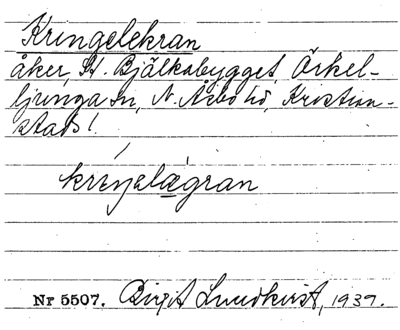 Kringelekran
åker, St. Bjälkabygget, Örkel-
ljunga sn, N. Åsbo hd, Kristian-
stads l.
kriŋəlægran
Nr 5507. Birgit Lundkvist, 1937.